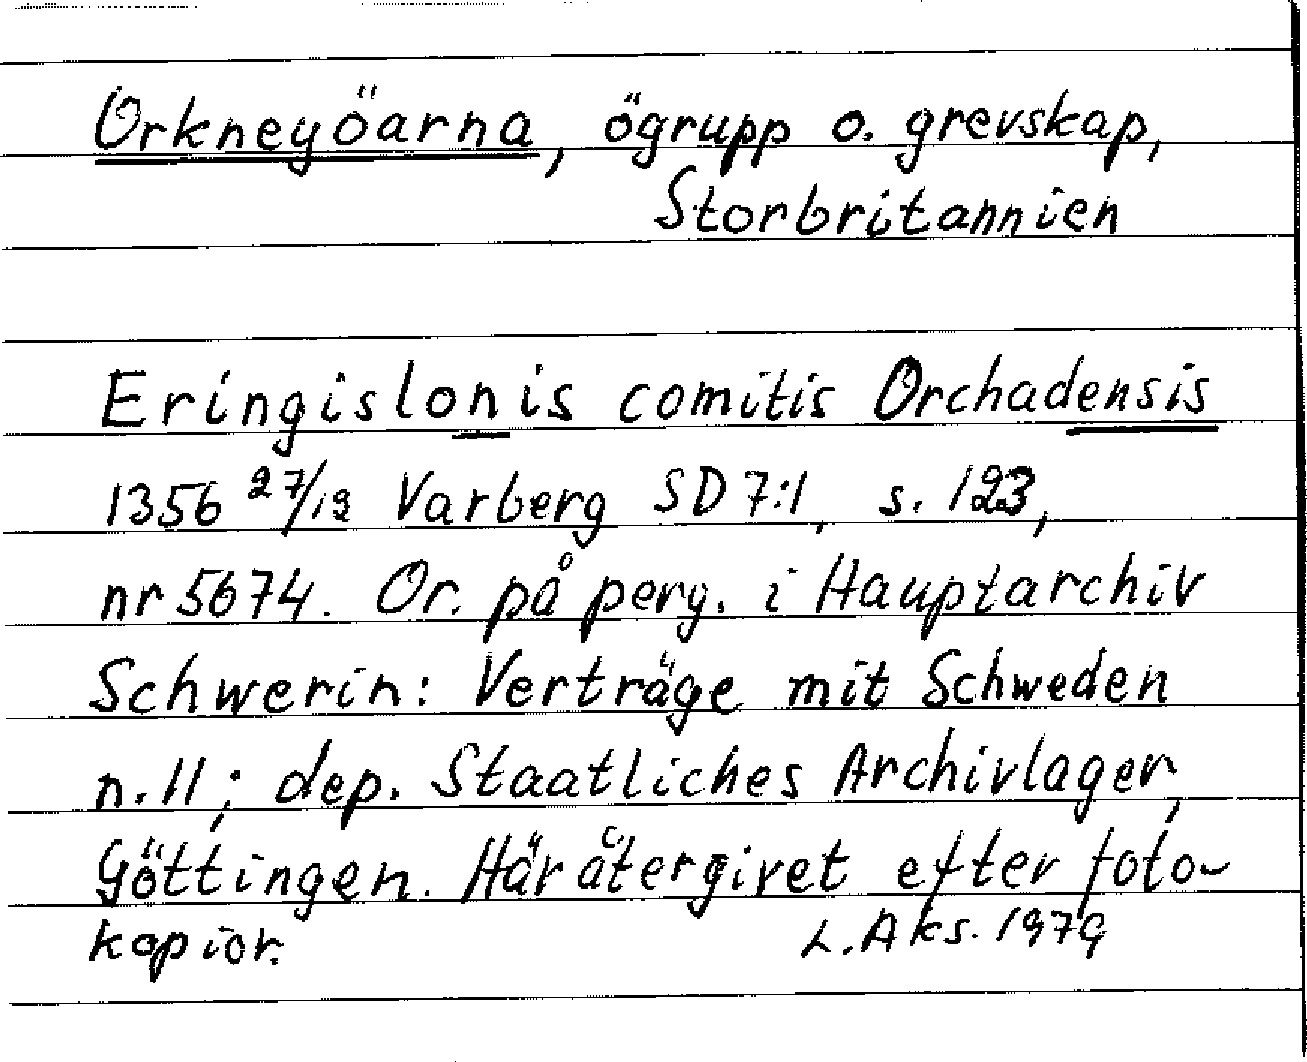 Orkneyöarna, ögrupp o. grevskap,
Storbritannien
Eringislonis comitis Orchadensis
1356 27/12 Varberg SD 7:1, s. 123,
nr 5674. Or. på perg. i Hauptarchiv
Schwerin: Verträge mit Schweden
n. 11; dep. Staatliches Archivlager,
Göttingen. Här återgivet efter foto-
kopior. L. Aks. 1979